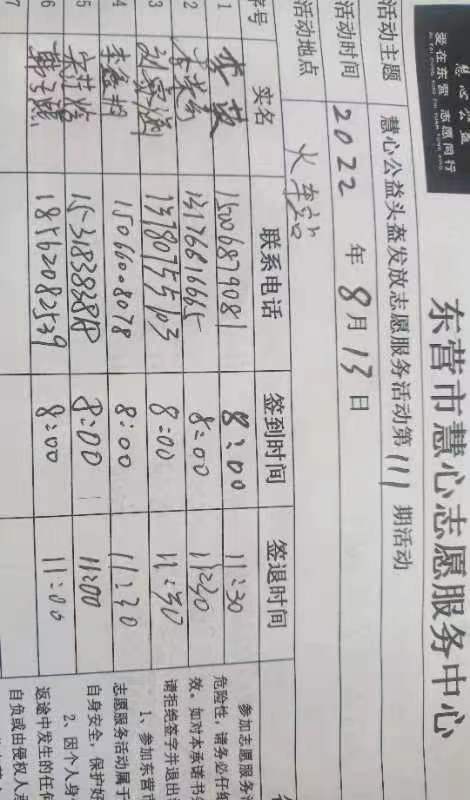 慧心公益
爱在东营 志愿同行
东营市慧心志愿服务中心
活动主题 慧心公益头盔发放志愿服务活动第111期活动
活动时间 2022年8月13日
活动地点 火车站
序号 实名 联系电话 签到时间 签退时间
1 15006879081 8:00 11:30
2 13176816665 8:00 11:30
3 13780755103 8:00 11:30
4 15066008078 8:00 11:30
5 8:00 11:00
6 18562082539 8:00 11:00
7
参加志愿服务活
危险性，请务必仔细
效。如对本承诺书
请拒绝签字并退出
1、参加东营市
志愿服务活动属于
自身安全，保护好
2、因个人身
返途中发生的任何
自负或由侵权人